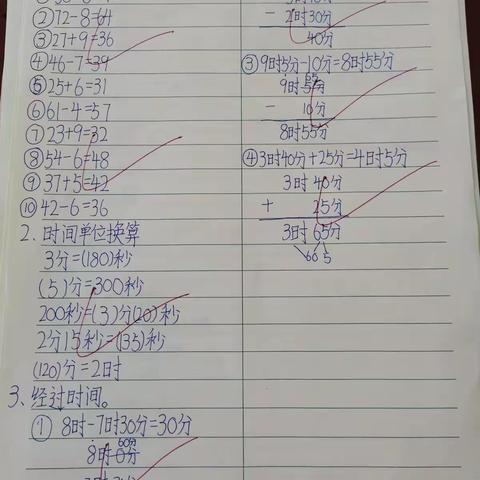 ②72-8=64
③27+9=36
④46-7=39
⑤25+6=31
⑥61-4=57
⑦23+9=32
⑧54-6=48
⑨37+5=42
⑩42-6=36
2、时间单位换算
3分=(180)秒
(5)分=300秒
200秒=(3)分(20)秒
2分15秒=(135)秒
(120)分=2时
3、经过时间。
① 8时-7时30分=30分
60分
8时0分
- 2时30分
40分
③9时5分-10分=8时55分
65
9时5分
- 10分
8时55分
④3时40分+25分=4时5分
3时40分
+ 25分
3时65分
60 5